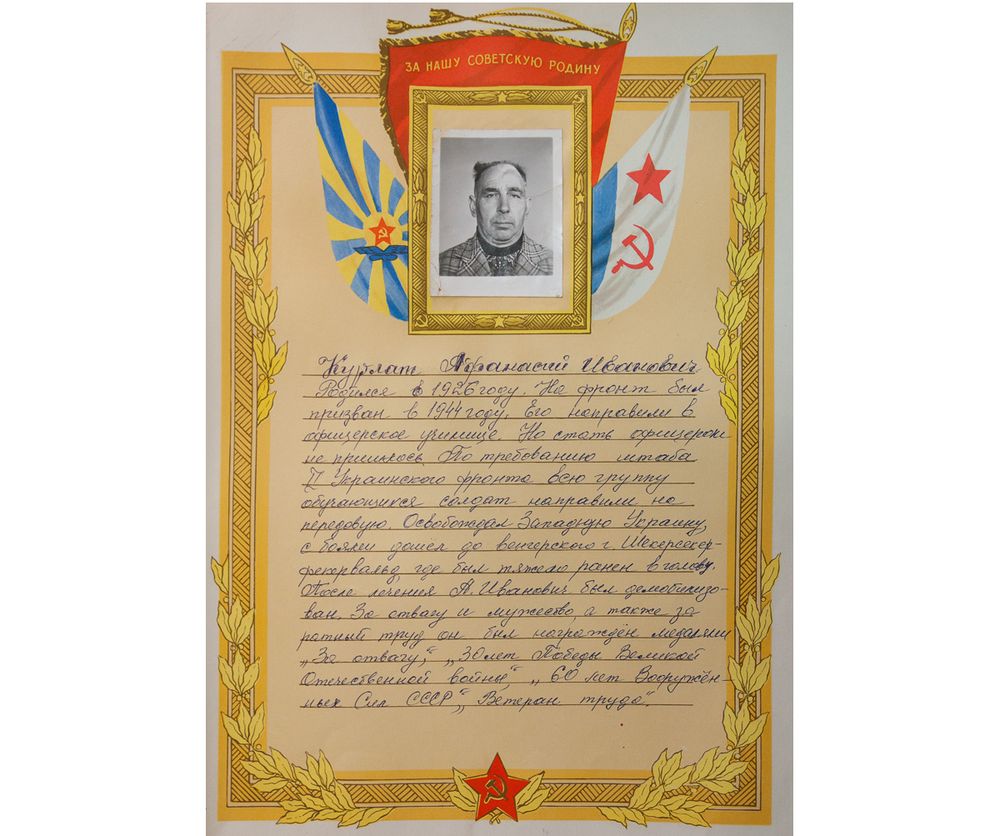 ЗА НАШУ СОВЕТСКУЮ РОДИНУ
Курлат Афанасий Иванович
Родился в 1926 году. На фронт был
призван в 1944 году. Его направили в
офицерское училище. Но стать офицером
не пришлось По требованию штаба
II Украинского фронта всю группу
обучающихся солдат направили на
передовую. Освобождал Западную Украину,
с боями дошел до венгерского г. Шекерсекер-
фехервальд, где был тяжело ранен в голову.
После лечения А. Иванович был демобилизо-
ван. За отвагу и мужество, а также за
ратный труд он был награждён медалями
„За отвагу", „30 лет Победы Великой
Отечественной войны", „60 лет Вооружён-
ных Сил СССР", „Ветеран труда".